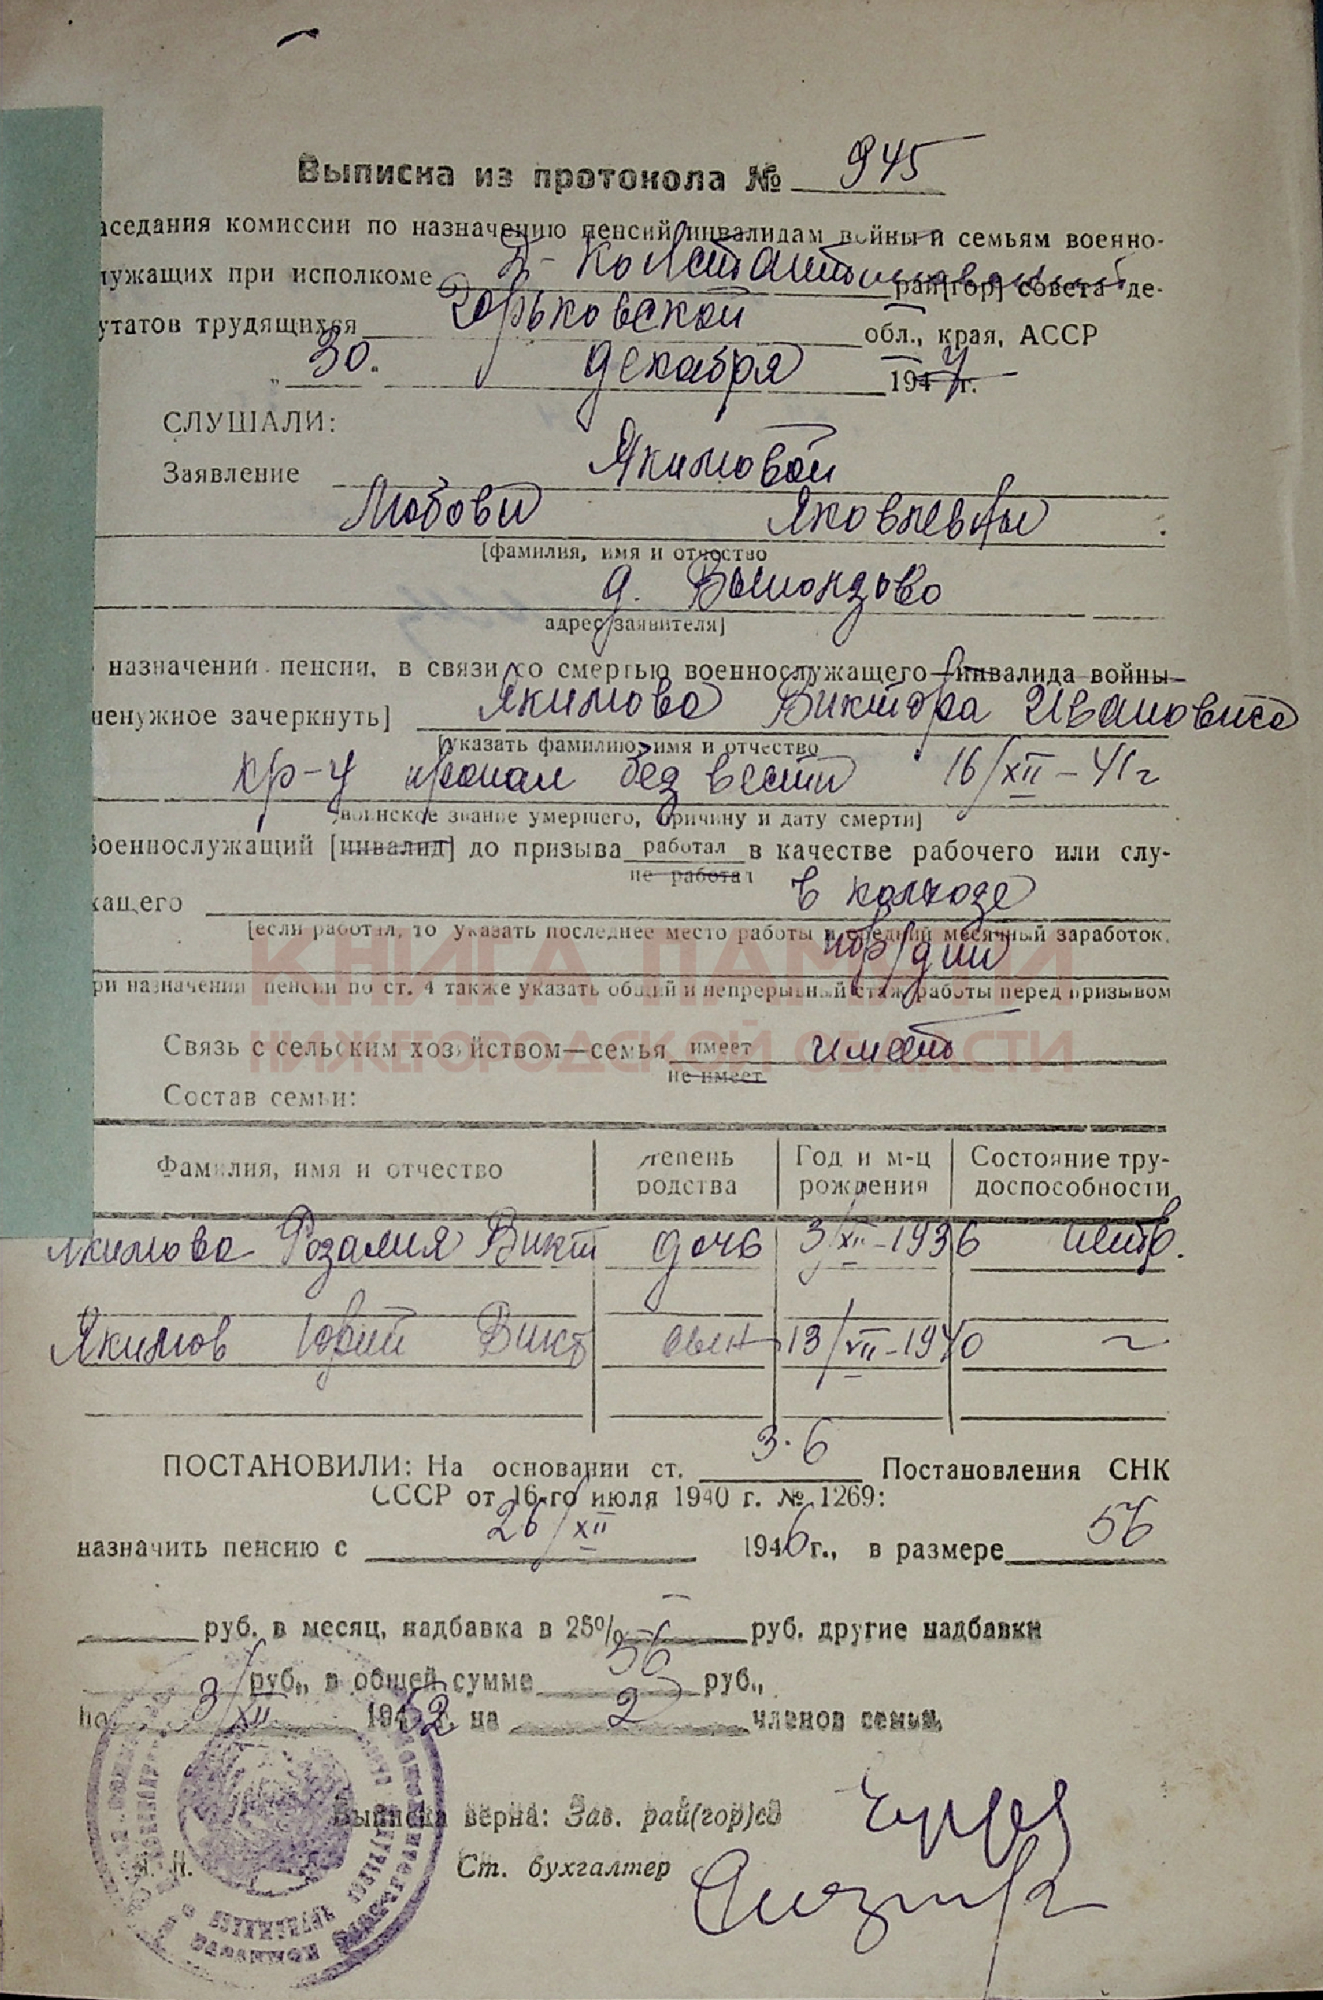 Выписка из протокола № 945
аседания комиссии по назначению пенсий инвалидам войны и семьям военно-
лужащих при исполкоме Д-Константиновский рай[гор] совета де-
утатов трудящихся Горьковской обл., края, АССР
„ 30. декабря 1947 г.
СЛУШАЛИ:
Заявление Якимовой
Любови Яковлевны
[фамилия, имя и отчество
д. Вышонзово
адрес заявителя]
назначении пенсии, в связи со смертью военнослужащего инвалида войны
ненужное зачеркнуть] Якимова Виктора Ивановича
[указать фамилию, имя и отчество
кр-ц пропал без вести 16/XII-41г
воинское звание умершего, причину и дату смерти]
военнослужащий [инвалид] до призыва работал в качестве рабочего или слу-
не работал
жащего в колхозе
[если работал, то указать последнее место работы и средний месячный заработок,
при назначении пенсии по ст. 4 также указать общий и непрерывный стаж работы перед призывом
Связь с сельским хозяйством—семья имеет имеет
не имеет
Состав семьи:
Фамилия, имя и отчество степень родства Год и м-ц рождения Состояние тру-доспособности
Якимова Розалия Викт дочь 3/XII-1936
Якимов Юрий Викт сын 13/VII-1940 ~
ПОСТАНОВИЛИ: На основании ст. 3.6 Постановления СНК
СССР от 16-го июля 1940 г. № 1269:
назначить пенсию с 26/XII 1946 г., в размере 56
руб. в месяц, надбавка в 25% — руб. другие надбавки
руб., в общей сумме 56 руб.,
по 3/XII 1952 г. на 2 членов семьи,
Выписка верна: Зав. рай(гор)со
Ст. бухгалтер
КНИГА ПАМЯТИ
НИЖЕГОРОДСКОЙ ОБЛАСТИ